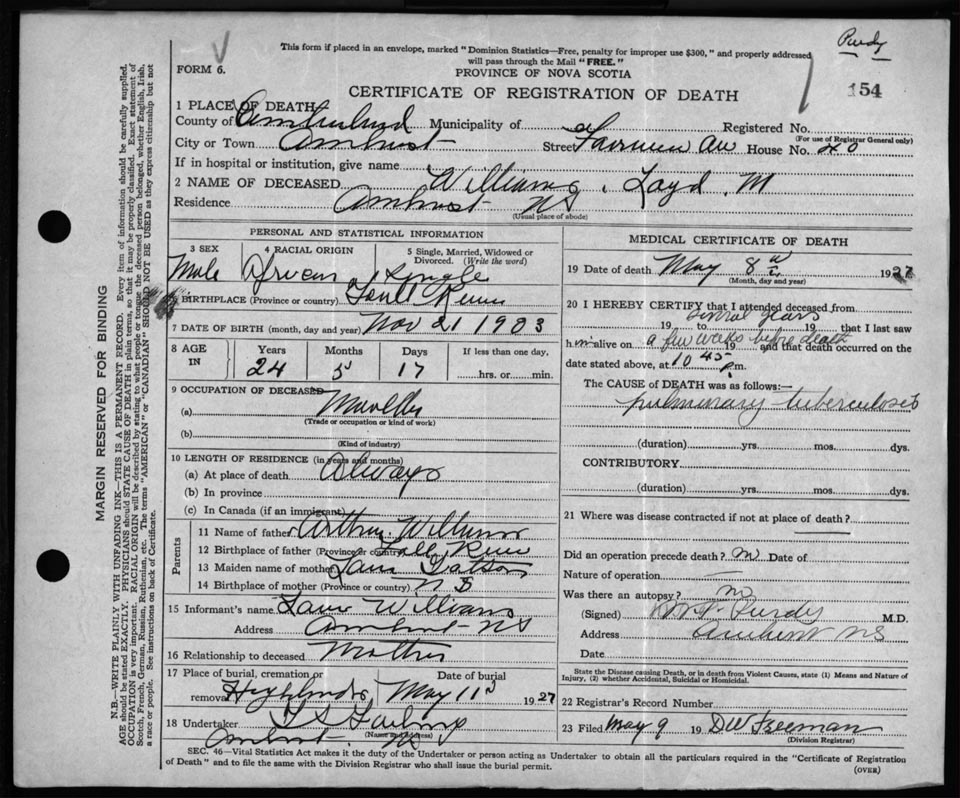 Purdy
This form if placed in an envelope, marked "Dominion Statistics—Free, penalty for improper use $300," and properly addressed
will pass through the Mail "FREE."
FORM 6.
PROVINCE OF NOVA SCOTIA
154
CERTIFICATE OF REGISTRATION OF DEATH
1 PLACE OF DEATH
County of Cumberland Municipality of Registered No.
(For use of Registrar General only)
City or Town Amherst Street Ave House No. 20
If in hospital or institution, give name
2 NAME OF DECEASED Williams, Loyd M
Residence Amherst NS
(Usual place of abode)
PERSONAL AND STATISTICAL INFORMATION
3 SEX 4 RACIAL ORIGIN 5 Single, Married, Widowed or
Divorced. (Write the word)
Male African Single
6 BIRTHPLACE (Province or country)
7 DATE OF BIRTH (month, day and year) Nov 21 1903
8 AGE IN Years Months Days If less than one day,
24 5 17 hrs. or min.
9 OCCUPATION OF DECEASED
(a) Moulder
(Trade or occupation or kind of work)
(b)
(Kind of industry)
10 LENGTH OF RESIDENCE (in years and months)
(a) At place of death Always
(b) In province
(c) In Canada (if an immigrant)
Parents
11 Name of father Arthur Williams
12 Birthplace of father (Province or country)
13 Maiden name of mother
14 Birthplace of mother (Province or country) N.S
15 Informant's name Williams
Address Amherst NS
16 Relationship to deceased Mother
17 Place of burial, cremation or Date of burial
removal Highlands May 11 1927
18 Undertaker
(Name and address)
Amherst NS
MEDICAL CERTIFICATE OF DEATH
19 Date of death May 8 1927
(Month, day and year)
20 I HEREBY CERTIFY that I attended deceased from
several years
19 to 19 that I last saw
him alive on a few weeks before death 19 and that death occurred on the
date stated above, at 10 45 p.m.
The CAUSE of DEATH was as follows:—
pulmonary tuberculosis
(duration) yrs. mos. dys.
CONTRIBUTORY
(duration) yrs. mos. dys.
21 Where was disease contracted if not at place of death?
Did an operation precede death? no Date of
Nature of operation
Was there an autopsy? no
(Signed) Purdy M.D.
Address Amherst NS
Date
State the Disease causing Death, or in death from Violent Causes, state (1) Means and Nature of
Injury, (2) whether Accidental, Suicidal or Homicidal.
22 Registrar's Record Number
23 Filed May 9 19 DW Freeman
(Division Registrar)
SEC. 46—Vital Statistics Act makes it the duty of the Undertaker or person acting as Undertaker to obtain all the particulars required in the "Certificate of Registration
of Death" and to file the same with the Division Registrar who shall issue the burial permit.
(OVER)
MARGIN RESERVED FOR BINDING
N.B.—WRITE PLAINLY WITH UNFADING INK—THIS IS A PERMANENT RECORD. Every item of information should be carefully supplied.
AGE should be stated EXACTLY. PHYSICIANS should STATE CAUSE OF DEATH in plain terms, so that it may be properly classified. Exact statement of
OCCUPATION is very important. RACIAL ORIGIN will be described by stating to what people or tongue the deceased person belonged, whether English, Irish,
Scotch, French, German, Russian, Ruthenian, etc. The terms "AMERICAN" or "CANADIAN" SHOULD NOT BE USED as they express citizenship but not
a race or people. See instructions on back of Certificate.